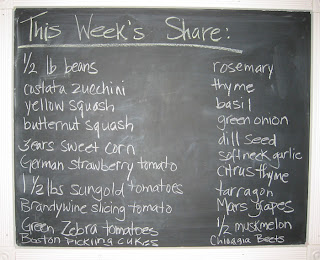 This Week's Share:
1/2 lb beans
costata zucchini
yellow squash
butternut squash
3 ears sweet corn
German strawberry tomato
1 1/2 lbs sungold tomatoes
Brandywine slicing tomato
Green Zebra tomatoes
Boston Pickling cukes
rosemary
thyme
basil
green onion
dill seed
softneck garlic
citrus thyme
tarragon
Mars grapes
1/2 muskmelon
Chioggia Beets